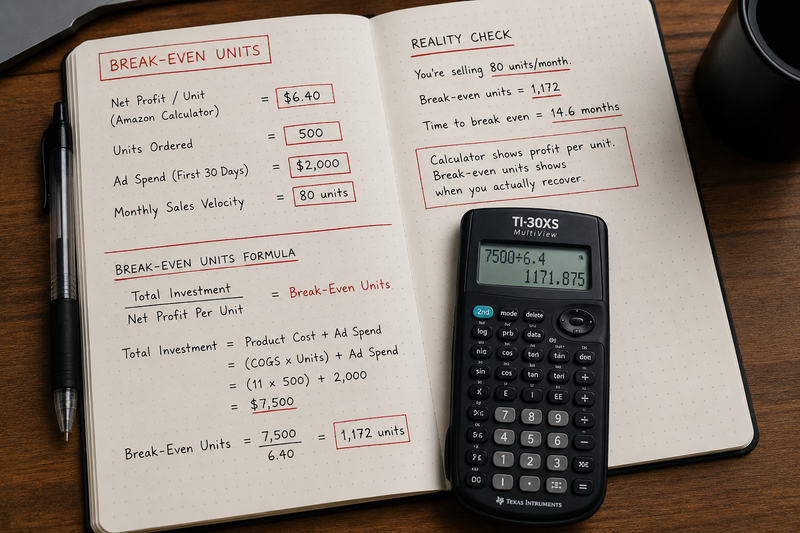 BREAK-EVEN UNITS
Net Profit / Unit = $6.40
(Amazon Calculator)
Units Ordered = 500
Ad Spend (First 30 Days) = $2,000
Monthly Sales Velocity = 80 units
BREAK-EVEN UNITS FORMULA
Total Investment
Net Profit Per Unit
= Break-Even Units
Total Investment = Product Cost + Ad Spend
= (COGS x Units) + Ad Spend
= (11 x 500) + 2,000
= $7,500
Break-Even Units = 7,500
6.40
= 1,172 units
REALITY CHECK
You're selling 80 units/month.
Break-even units = 1,172
Time to break even = 14.6 months
Calculator shows profit per unit.
Break-even units shows
when you actually recover.
TI-30XS
MultiView
7500÷6.4
1171.875
2nd mode delete
log prb data
cos tan
sin cos tan
EE
7 8 9
4 5 6
1 2 3
TEXAS INSTRUMENTS